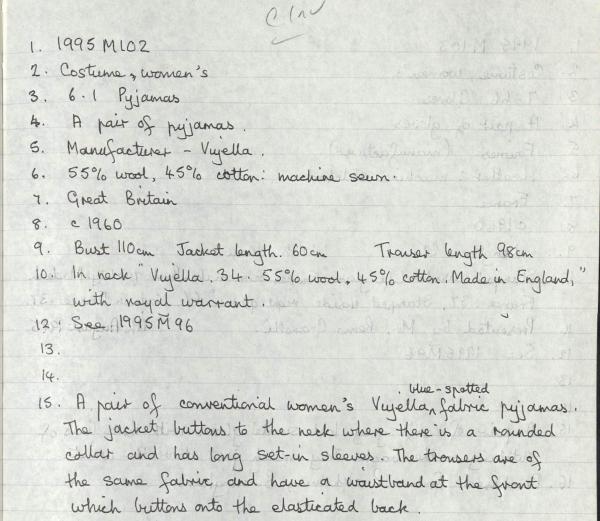 1. 1995 M102
2. Costume, women's
3. 6.1 Pyjamas
4. A pair of pyjamas.
5. Manufacturer - Vyella.
6. 55% wool, 45% cotton: machine sewn.
7. Great Britain
8. c 1960
9. Bust 110cm Jacket length. 60cm Trouser length 98cm
10. In neck "Vyella. 34. 55% wool, 45% cotton. Made in England,"
with royal warrant.
12. See 1995M96
13.
14.
blue-spotted
15. A pair of conventional women's Vyella fabric pyjamas.
The jacket buttons to the neck where there is a rounded
collar and has long set-in sleeves. The trousers are of
the same fabric and have a waistband at the front
which buttons onto the elasticated back.